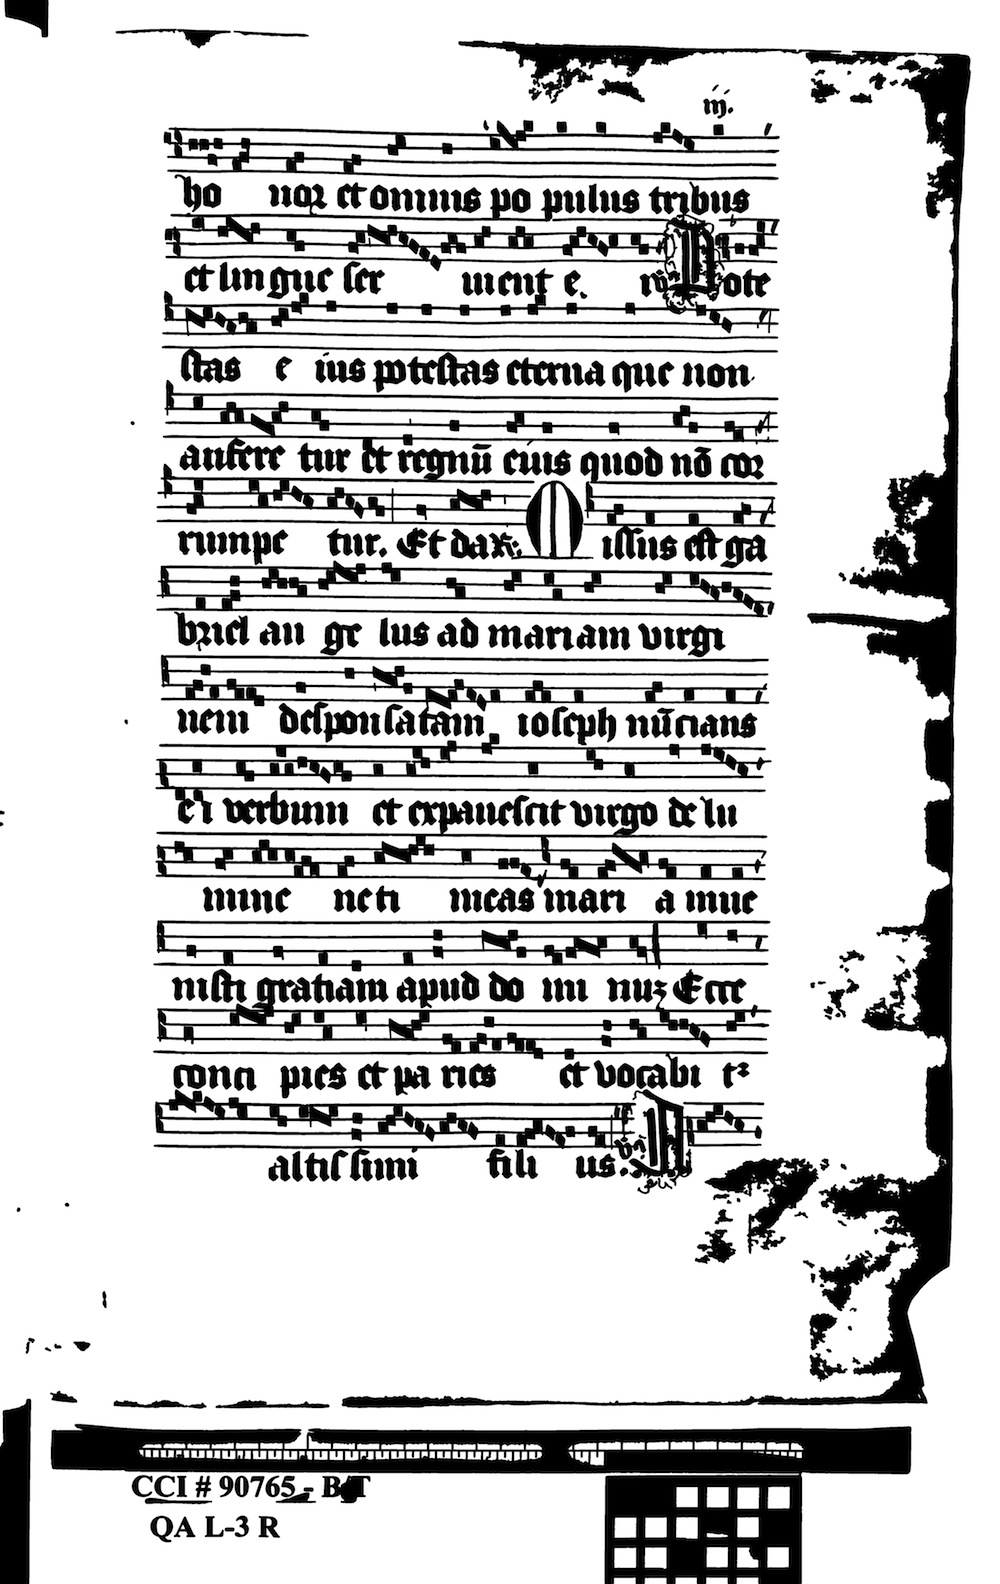 iij.
ho nor et omnis po pulus tribus
et lingue ser uient e. v Pote
stas e ius potestas eterna que non
aufere tur et regnū eius quod nō cor
rumpe tur. Et da R. Missus est ga
briel an ge lus ad mariam virgi
nem desponsatam ioseph nūcians
ei verbum et expauescit virgo de lu
mine ne ti meas mari a inue
nisti gratiam apud do mi nuz Ecce
conci pies et pa ries et vocabi tᷣ
altissimi fili us.
CCI # 90765 - B/T
QA L-3 R